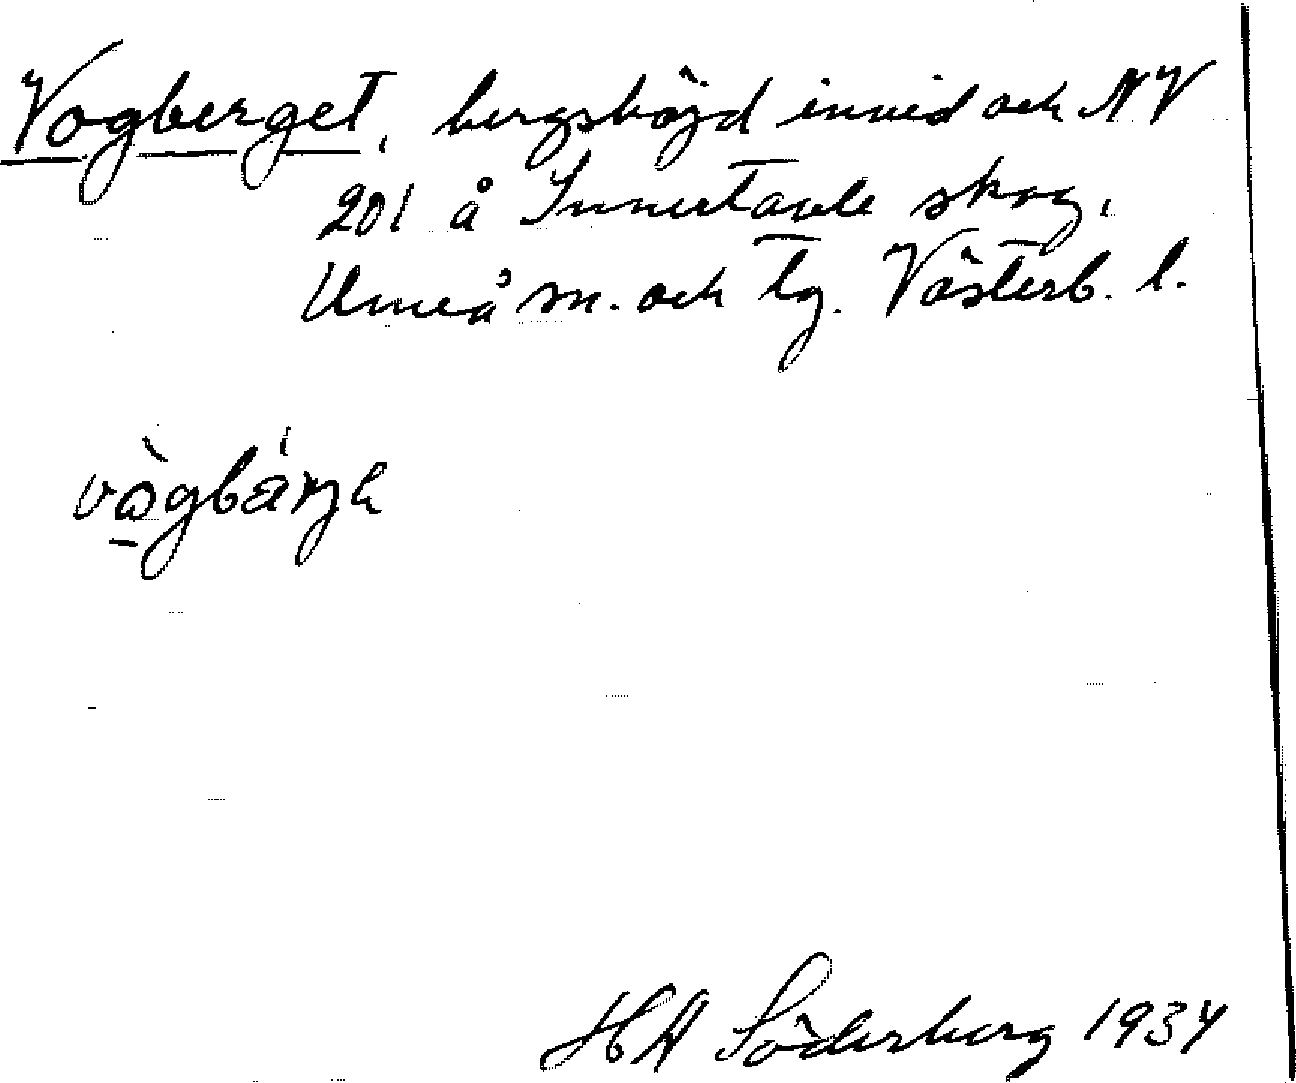 Vogberget, bergshöjd invid och NV
201 å Innertavle skog,
Umeå sn. och tg. Västerb. l.
HA Söderberg 1934